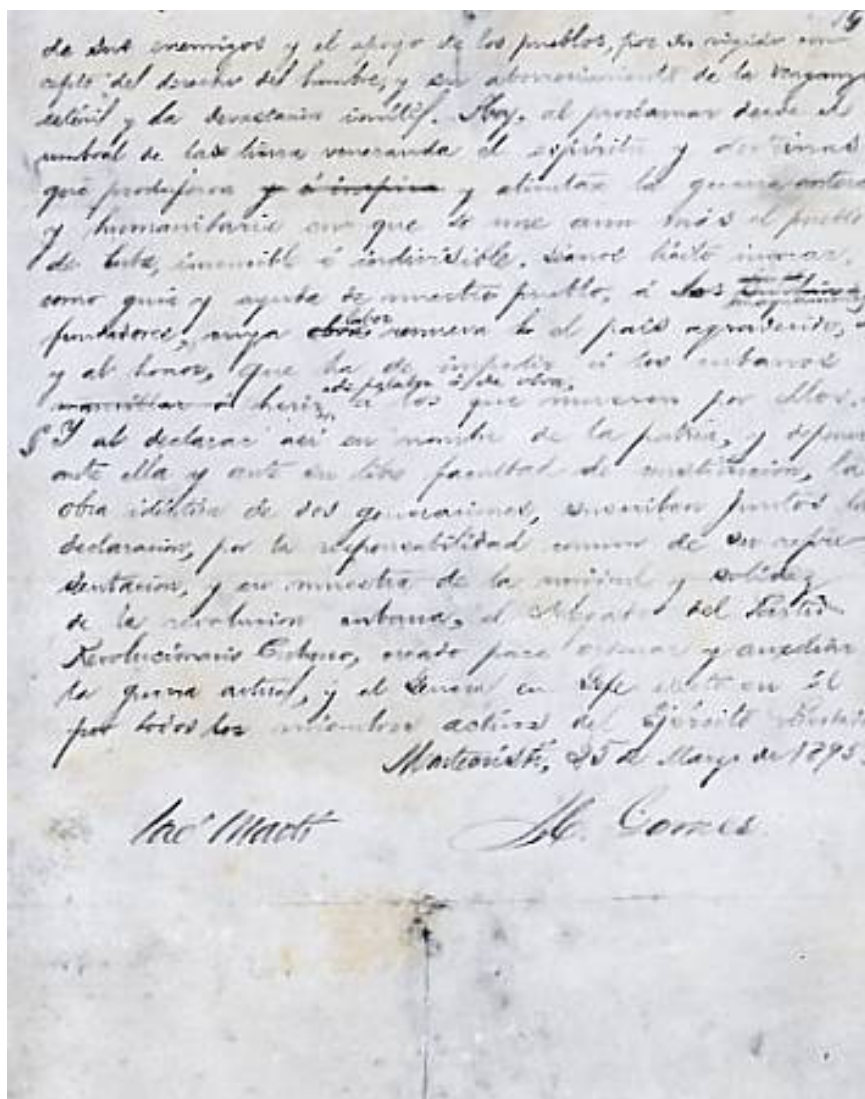 de sus enemigos y el apoyo de los pueblos, por su rígido con
cepto del derecho del hombre, y su aborrecimiento de la venganza
estéril y la devastacion inútil. Hoy, al proclamar desde el
umbral de la tierra veneranda el espíritu y doctrinas
que produjeron y alientan la guerra entera
y humanitaria en que se une aun más el pueblo
de Cuba, invencible é indivisible, séanos lícito invocar,
como guia y ayuda de nuestro pueblo, á los magnánimos
fundadores, cuya labor renueva el país agradecido,
y al honor, que ha de impedir á los cubanos
herir, de palabra ó de obra, á los que mueren por ellos.
§ Y al declarar así en nombre de la patria, y deponer
ante ella y ante su libre facultad de constitucion, la
obra idéntica de dos generaciones, suscriben juntos la
declaracion, por la responsabilidad comun de su repre
sentacion, y en muestra de la unidad y solidez
de la revolucion cubana, el Delegado del Partido
Revolucionario Cubano, creado para ordenar y auxiliar
la guerra actual, y el General en Jefe electo en él
por todos los miembros activos del Ejército Libertador
Montecristi, 25 de Marzo de 1895.
José Martí M. Gomez